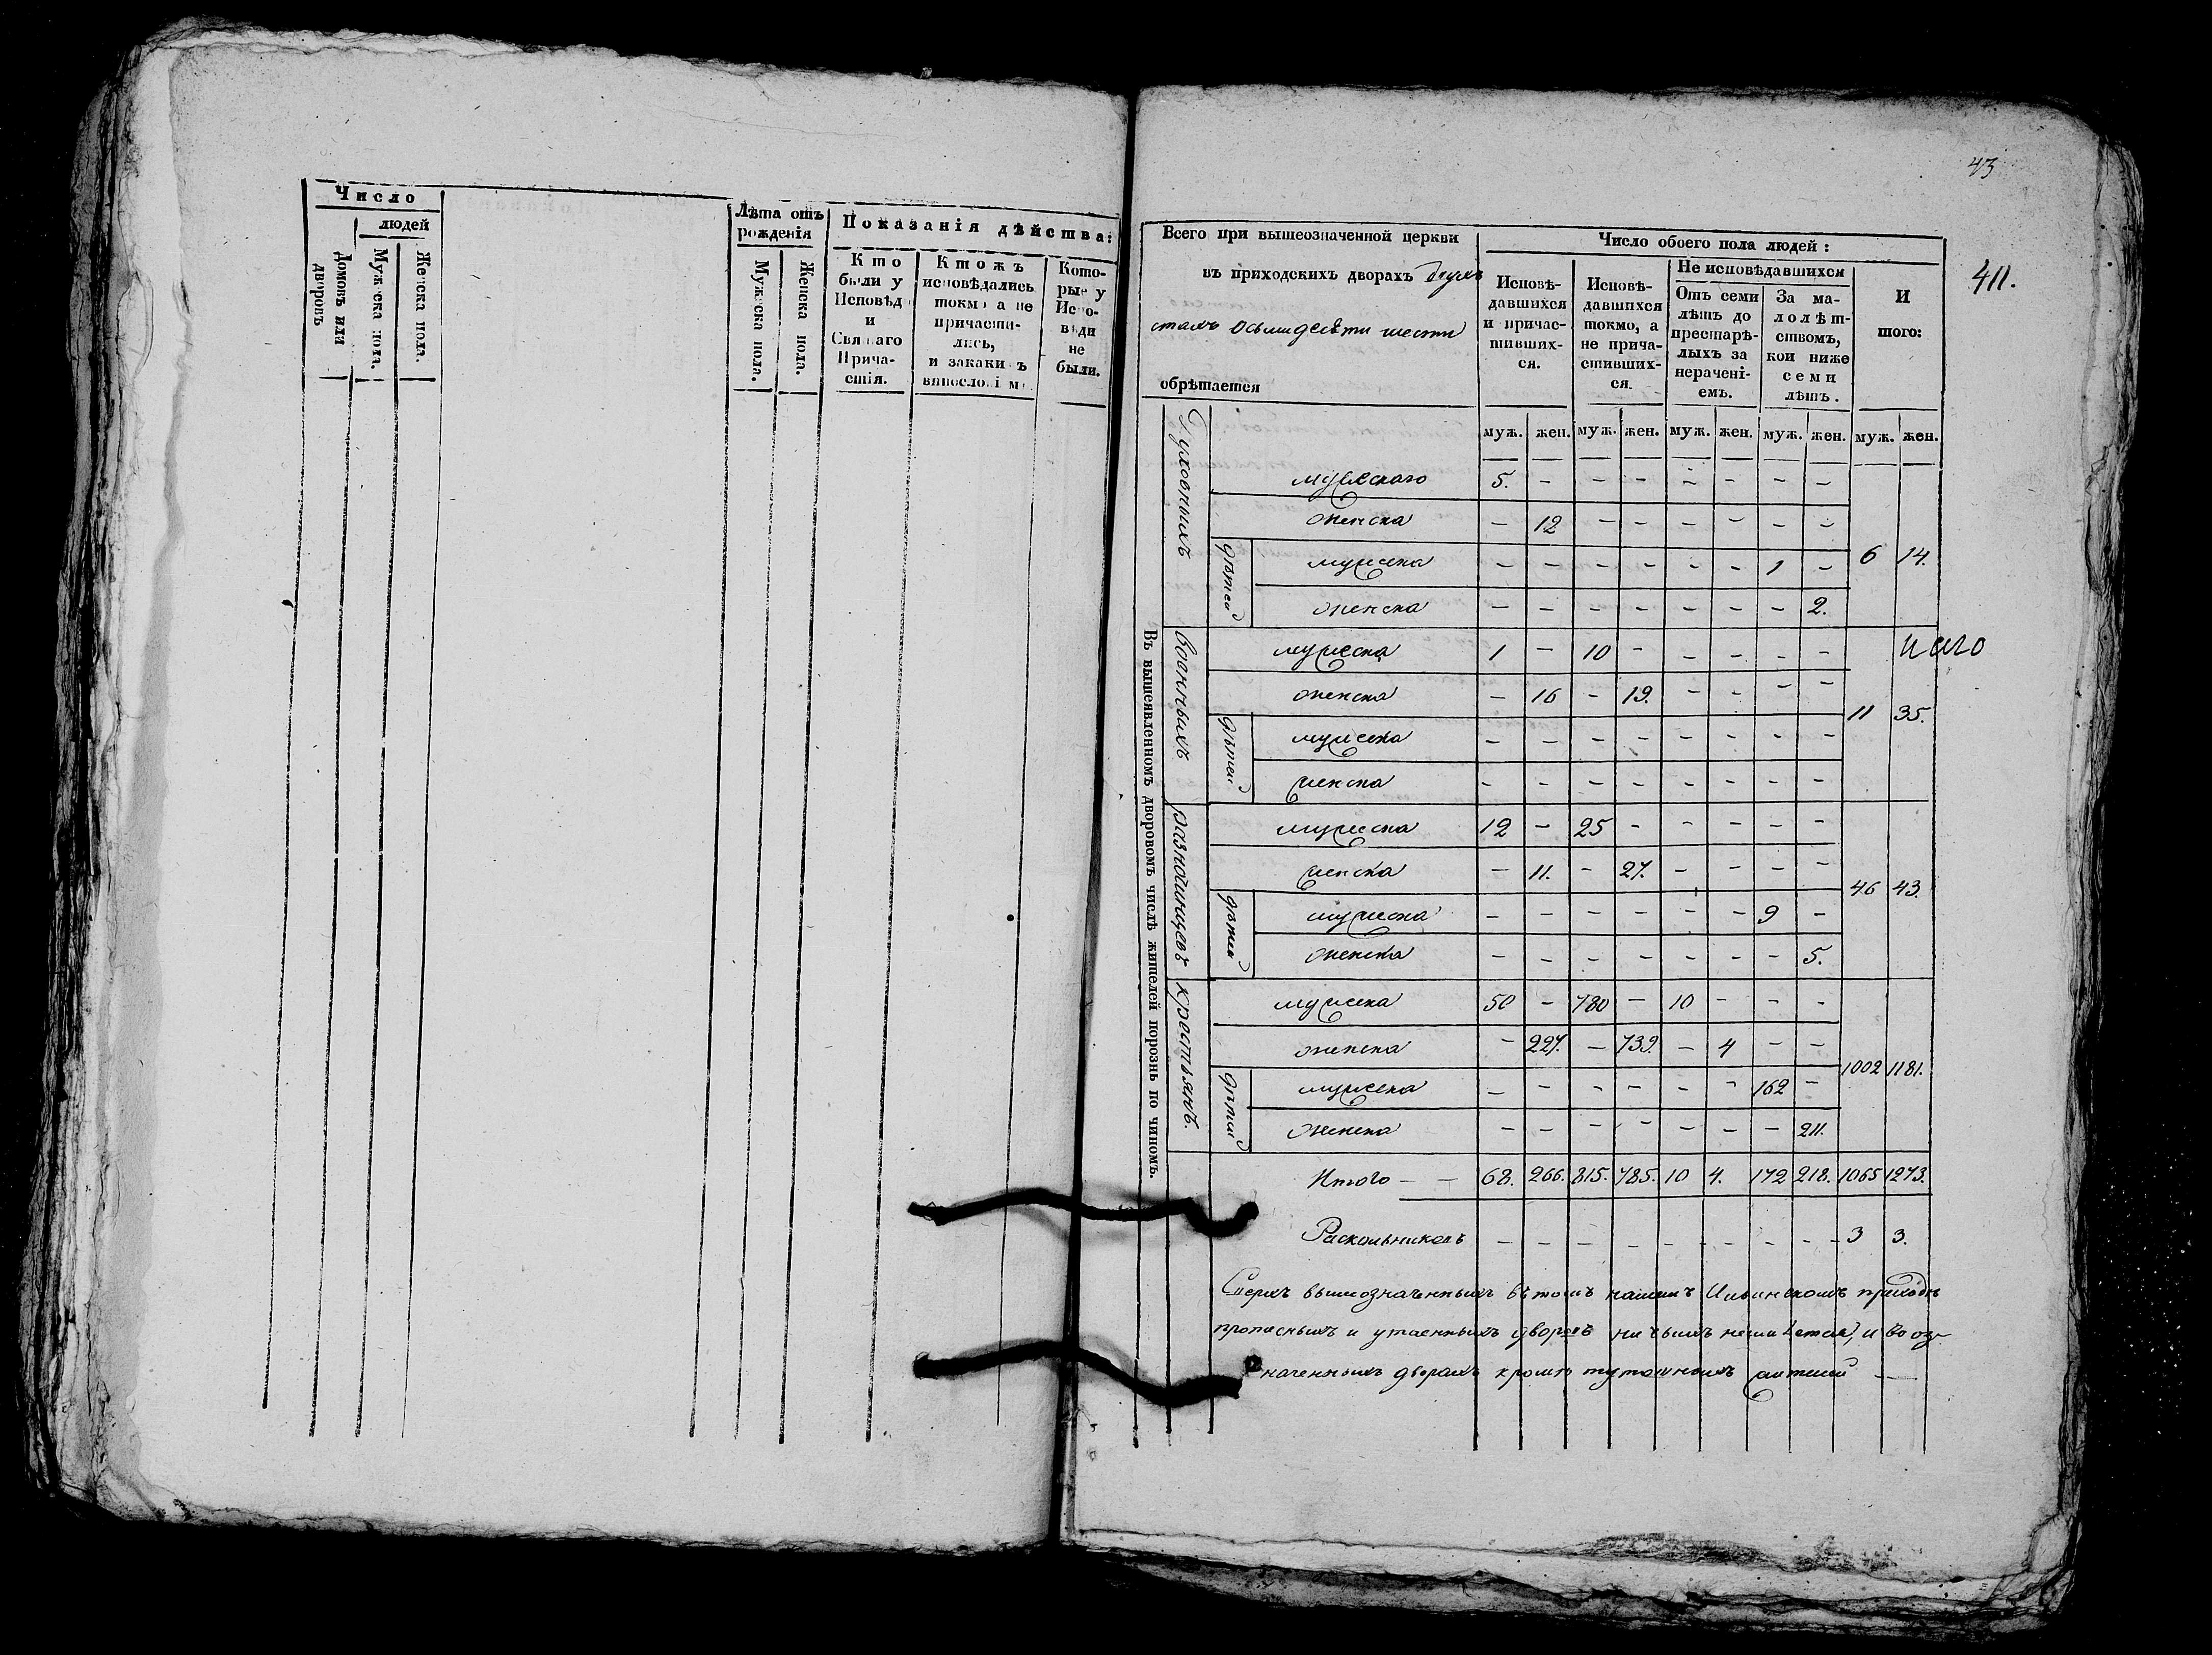 Число
людей
Домовъ или дворовъ
Мужска пола.
Женска пола.
Лѣта отъ рожденія
Мужска пола.
Женска пола.
Показанія дѣйства:
Кто были у Исповѣди и Святаго Прича- стія.
Ктожъ исповѣдались токмо а не причасти- лись, и закаки
Кото- рые у Испо- вѣди не были.
43
411.
Всего при вышеозначенной церкви
въ приходскихъ дворахъ двухъ
стахъ осьмидесѣти шести
обрѣтается
Число обоего пола людей:
Исповѣ- давшихся и причас- тивших- ся.
Исповѣ- давшихся токмо, а не прича- стивших- ся.
Не исповѣдавшихся
Отъ семи лѣтъ до престарѣ- лыхъ за нерачені- емъ.
За ма- лолѣт- ствомъ, кои ниже семи лѣтъ.
И того:
муж. жен. муж. жен. муж. жен. муж. жен. муж. жен.
Въ вышеявленномъ дворовомъ числѣ жителей порознь по чиномъ.
Духовныхъ
мужескаго 5. – – – – – – –
женска – 12 – – – – – –
дѣтей
мужеска – – – – – – 1 –
женска – – – – – – – 2.
6 14.
военныхъ
мужеска 1 – 10 – – – – –
женска – 16 – 19. – – – –
дѣтей
мужеска – – – – – – – –
женска – – – – – – – –
11 35.
разночинцевъ
мужеска 12 – 25 – – – – –
женска – 11. – 27. – – – –
дѣтей
мужеска – – – – – – 9 –
женска – – – – – – – 5.
46 43.
крестьянъ.
мужеска 50 – 780 – 10 – – –
женска – 227. – 739. – 4 – –
дѣтей
мужеска – – – – – – 162 –
женска – – – – – – – 211.
1002 1181.
Итого – – 68. 266. 815. 785. 10 4. 172 218. 1065 1273.
Раскольниковъ – – – – – – – – 3 3.
Сверхъ вышеозначенныхъ въ томъ нашемъ Ильинскомъ приходѣ
прописныхъ и утаенныхъ дворовъ ни чьихъ неимѣется, и во оз-
наченныхъ дворахъ кромѣ тутошныхъ жителей –